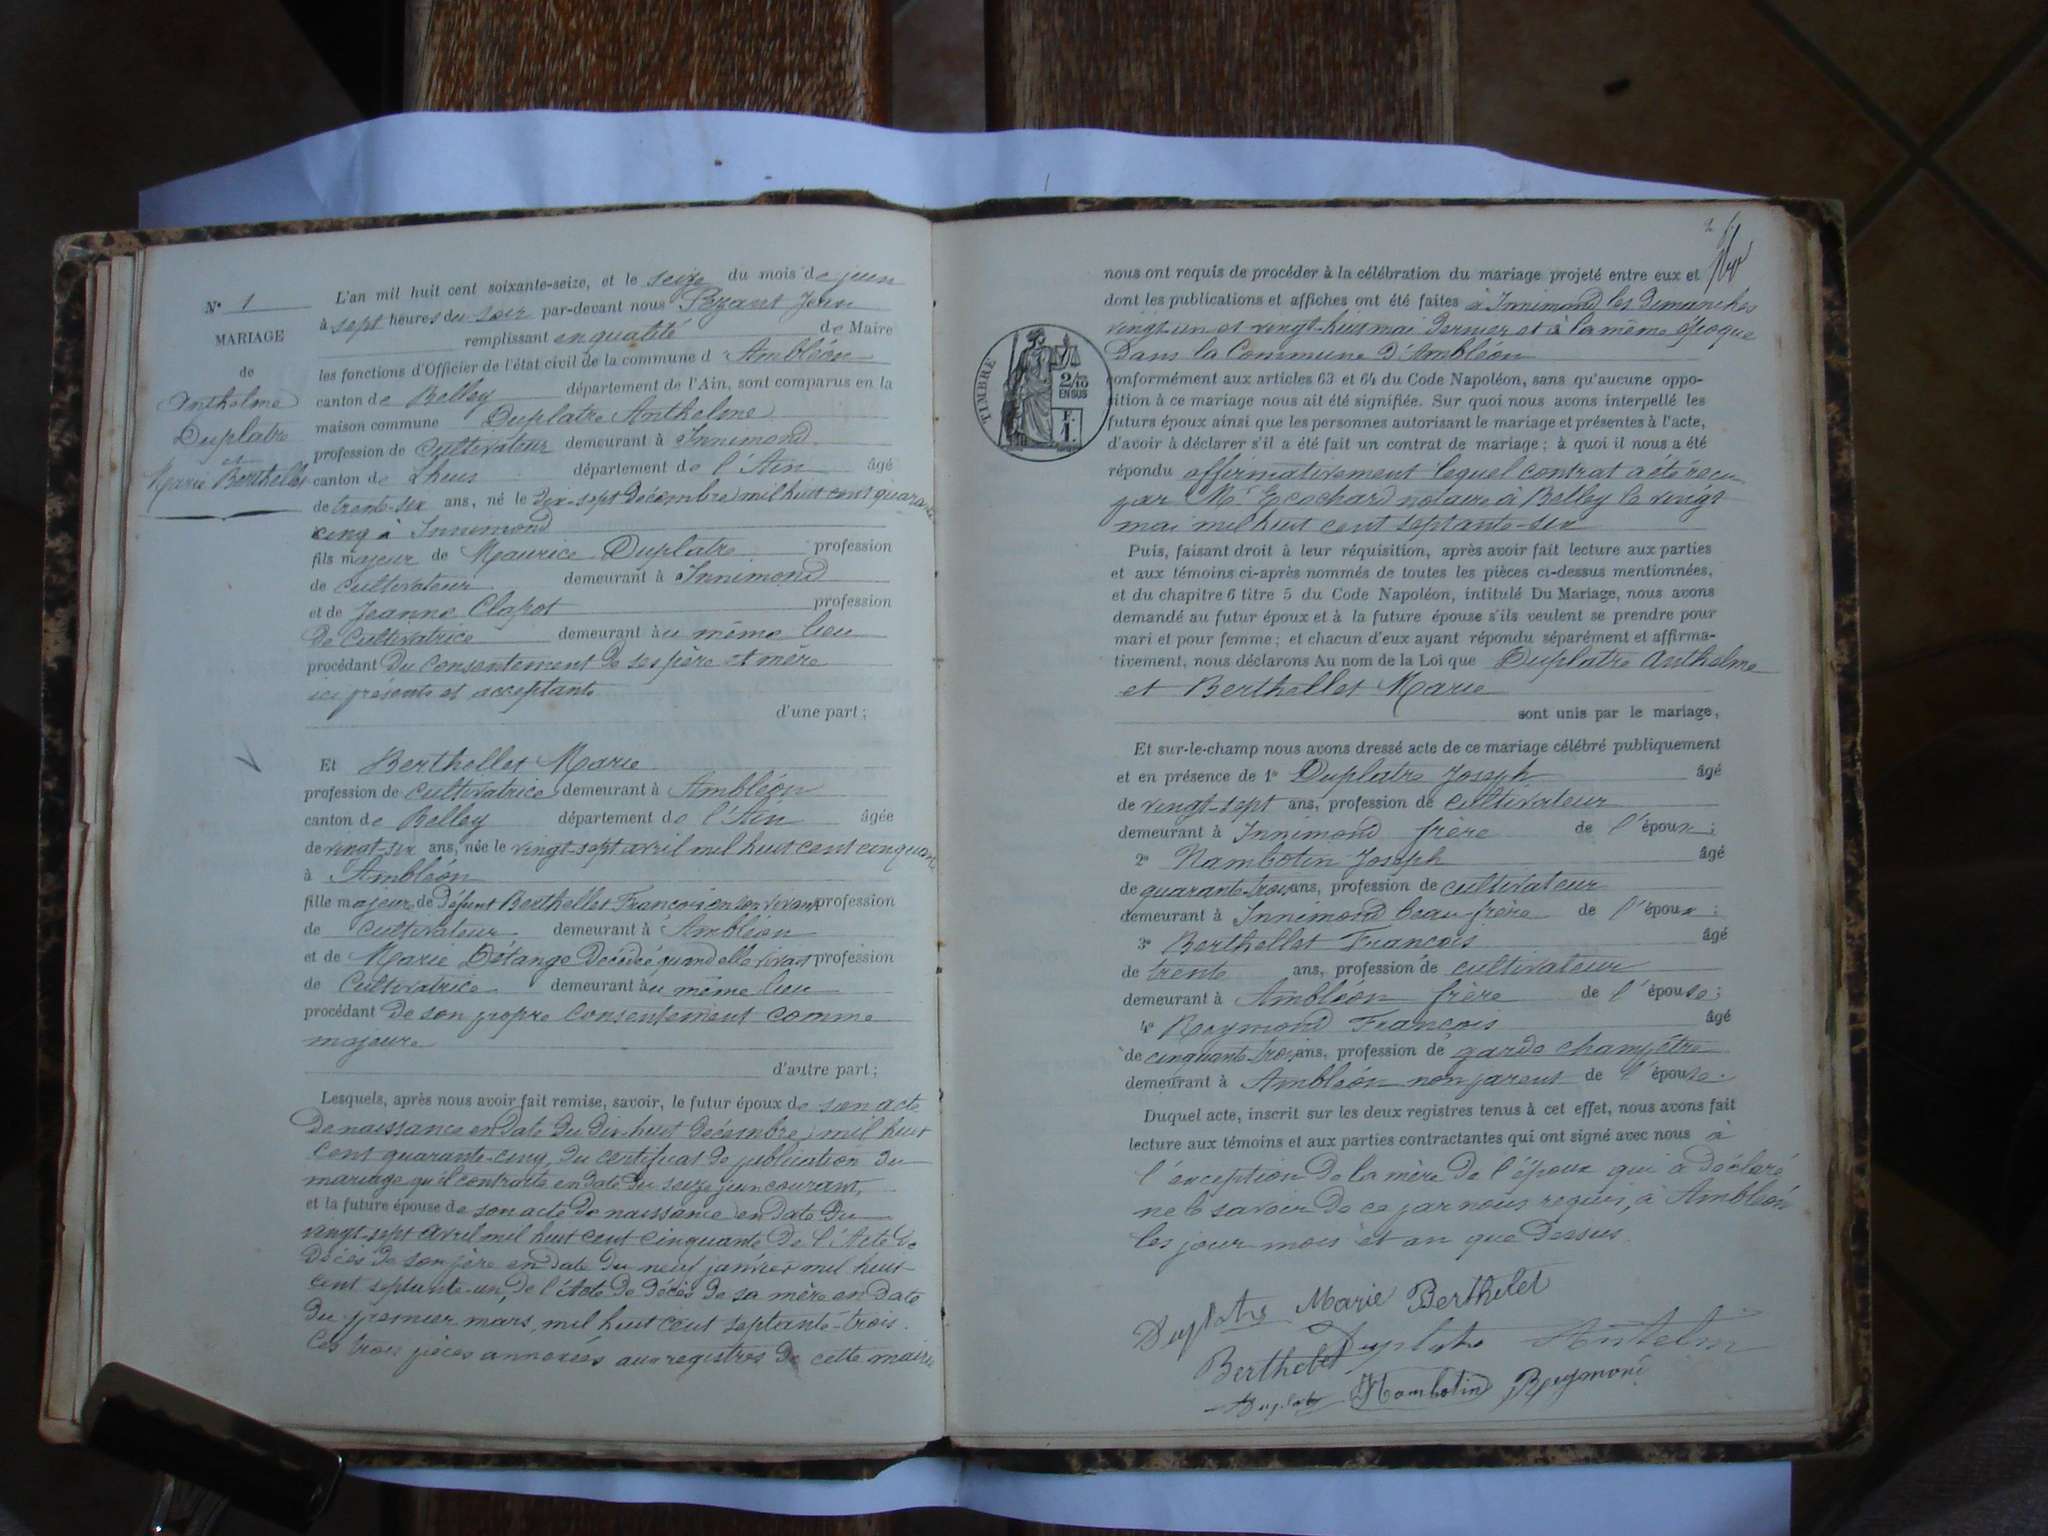 N° 1
MARIAGE
de
Anthelme
Duplatre
et
Marie Berthellet
L'an mil huit cent soixante-seize, et le seize du mois de juin
à sept heures du soir par-devant nous Jean
remplissant en qualité de Maire
les fonctions d'Officier de l'état civil de la commune d'Ambléon
canton de Belley département de l'Ain, sont comparus en la
maison commune Duplatre Anthelme
profession de cultivateur demeurant à Innimond
canton de Lhuis département de l'Ain âgé
de trente-six ans, né le dix-sept décembre mil huit cent quarante
cinq à Innimond
fils majeur de Maurice Duplatre profession
de cultivateur demeurant à Innimond
et de Jeanne Clapot profession
de Cultivatrice demeurant au même lieu
procédant du consentement de ses père et mère
ici présents et acceptants
d'une part ;
Et Berthellet Marie
profession de cultivatrice demeurant à Ambléon
canton de Belley département de l'Ain âgée
de vingt-six ans, née le vingt-sept avril mil huit cent cinquante
à Ambléon
fille majeure de défunt Berthellet François en son vivant profession
de cultivateur demeurant à Ambléon
et de Marie Détange Décédée quand elle vivait profession
de Cultivatrice demeurant au même lieu
procédant de son propre consentement comme
majeure
d'autre part ;
Lesquels, après nous avoir fait remise, savoir, le futur époux de son acte
de naissance en date du dix-huit décembre mil huit
cent quarante-cinq, du certificat de publication du
mariage qu'il contracte en date du seize juin courant,
et la future épouse de son acte de naissance en date du
vingt-sept avril mil huit cent cinquante de l'Acte de
décès de son père en date du neuf janvier mil huit
cent septante-un, de l'Acte de décès de sa mère en date
du premier mars mil huit cent septante-trois.
Ces trois pièces annexées aux registres de cette mairie
2
nous ont requis de procéder à la célébration du mariage projeté entre eux et
dont les publications et affiches ont été faites à Innimond les dimanches
vingt-un et vingt-huit mai dernier et à la même époque
dans la Commune d'Ambléon
TIMBRE
2/10
EN SUS
F.
1
conformément aux articles 63 et 64 du Code Napoléon, sans qu'aucune oppo-
sition à ce mariage nous ait été signifiée. Sur quoi nous avons interpellé les
futurs époux ainsi que les personnes autorisant le mariage et présentes à l'acte,
d'avoir à déclarer s'il a été fait un contrat de mariage ; à quoi il nous a été
répondu affirmativement lequel contrat a été reçu
par Me Ecochard notaire à Belley le vingt
mai mil huit cent septante-six
Puis, faisant droit à leur réquisition, après avoir fait lecture aux parties
et aux témoins ci-après nommés de toutes les pièces ci-dessus mentionnées,
et du chapitre 6 titre 5 du Code Napoléon, intitulé Du Mariage, nous avons
demandé au futur époux et à la future épouse s'ils veulent se prendre pour
mari et pour femme ; et chacun d'eux ayant répondu séparément et affirma-
tivement, nous déclarons Au nom de la Loi que Duplatre Anthelme
et Berthellet Marie
sont unis par le mariage,
Et sur-le-champ nous avons dressé acte de ce mariage célébré publiquement
et en présence de 1° Duplatre Joseph âgé
de vingt-sept ans, profession de cultivateur
demeurant à Innimond frère de l'époux ;
2° Nambotin Joseph âgé
de quarante-trois ans, profession de cultivateur
demeurant à Innimond beau-frère de l'époux ;
3° Berthellet François âgé
de trente ans, profession de cultivateur
demeurant à Ambléon frère de l'épouse ;
4° Reymond François âgé
de cinquante-trois ans, profession de garde champêtre
demeurant à Ambléon non parent de l'épouse.
Duquel acte, inscrit sur les deux registres tenus à cet effet, nous avons fait
lecture aux témoins et aux parties contractantes qui ont signé avec nous à
l'exception de la mère de l'époux qui a déclaré
ne le savoir de ce par nous requis, à Ambléon
les jour mois et an que dessus.
Duplatre Marie Berthelet
Berthelet Duplatre Antelm
Duplatre Nambotin Reymond